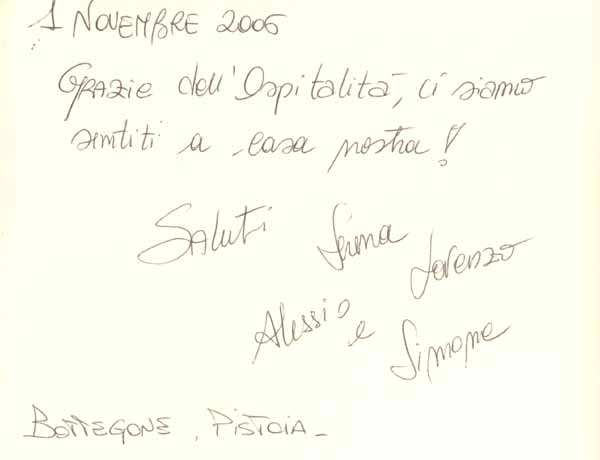 1 NOVEMBRE 2006
GRAZIE dell'Ospitalità, ci siamo
sentiti a casa nostra!
SALUTI
Lorenzo
Alessio e
Simone
BOTTEGONE, PISTOIA -